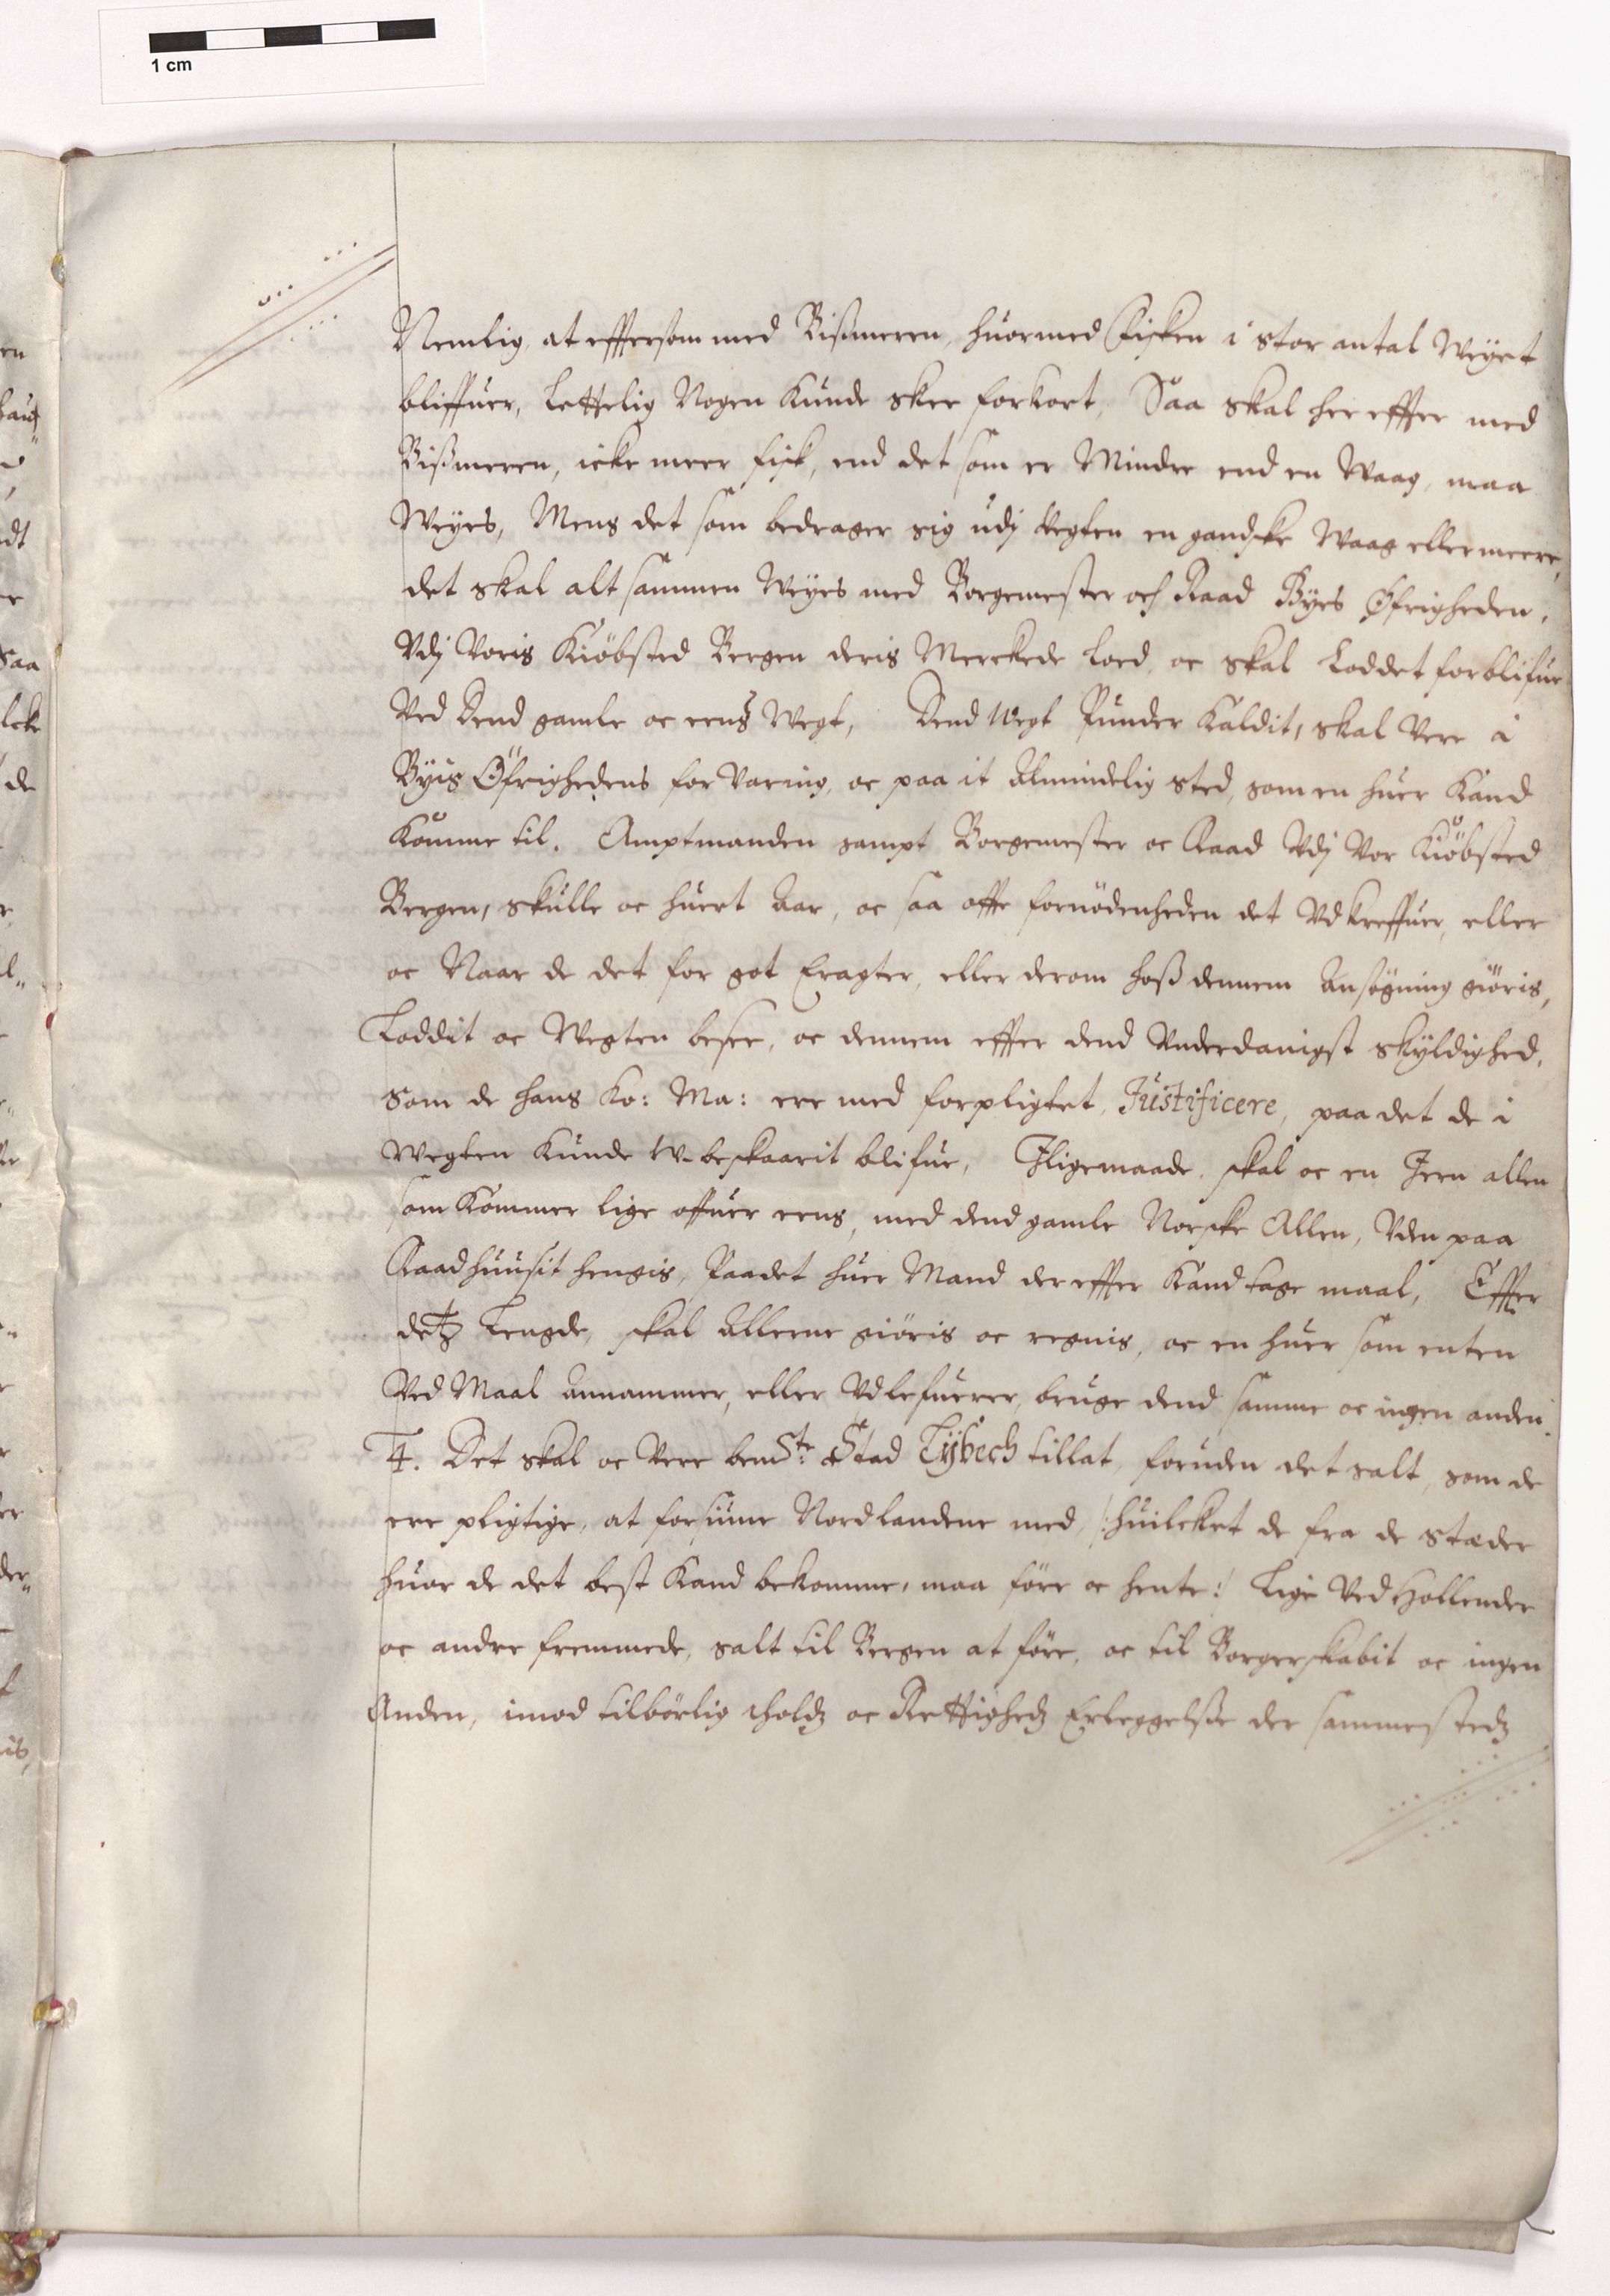 1 cm
Nemlig, at effttersom med Bißmeren, huormed Fisken i stor antal Weyet
bliffuer, Lettelig Nogen Kunde skee forkort, Saa skal her effter med
Bißmeren, icke meer fisk, end det som er Mindre end en Waag, maa
Weyes, Mens det som bedrager sig udj Vegten en gandske Waag eller meere,
det skal alt sammen Weyes med Borgemester och Raad Byes Øfrigheden,
Vdj Voris Kiöbsted Bergen deris Merckede Loed, oc skal Loddet forblifue
Ved Dend gamle oc eens Wegt, Dend Wegt Punder Kaldit, skal Vere i
Byis Öfrighedens forVaring, oc paa it Almindelig sted, som en huer Kand
Komme til. Amptmanden sampt Borgemester oc Raad Vdj Vor Kiöbsted
Bergen, skulle oc huert Aar, oc saa offte fornödenheden det Vdkreffuer, eller
oc Naar de det for got Eragter, eller derom hoß dennem Ansögning giöris,
Loddit oc Wegten besee, oc dennem effter dend Vnderdanigst skyldighed,
som de hans Ko: Ma: ere med forpligtet, Justificere, paa det de i
Wegten Kunde W-beskaarit blifue, Jligemaade skal oc en Jern allen
som Kommer lige offuer eens, med dend gamle Norske Allen, Vden paa
Raadhuusit hengis, Paadet huer Mand der effter Kand tage maal, Effter
detz Lengde, skal Allerne giöris oc regnis, oc en huer som enten
Ved Maal annammer, eller Vdlefuerer, bruge dend samme oc ingen anden.
4. Det skal oc Vere bemSte: Stad Lybech tillat, foruden det salt, som de
ere pligtige, at forsiune Nordlandene med /: huilcket de fra de stæder
huor de det best Kand bekomme, maa före oc hente :/ Lige Ved Hollender
oc andre fremmede, salt til Bergen at före, oc til Borgerskabit oc ingen
Anden, imod tilbörlig tholdz oc Rettighedz Erleggelße der sammestedz